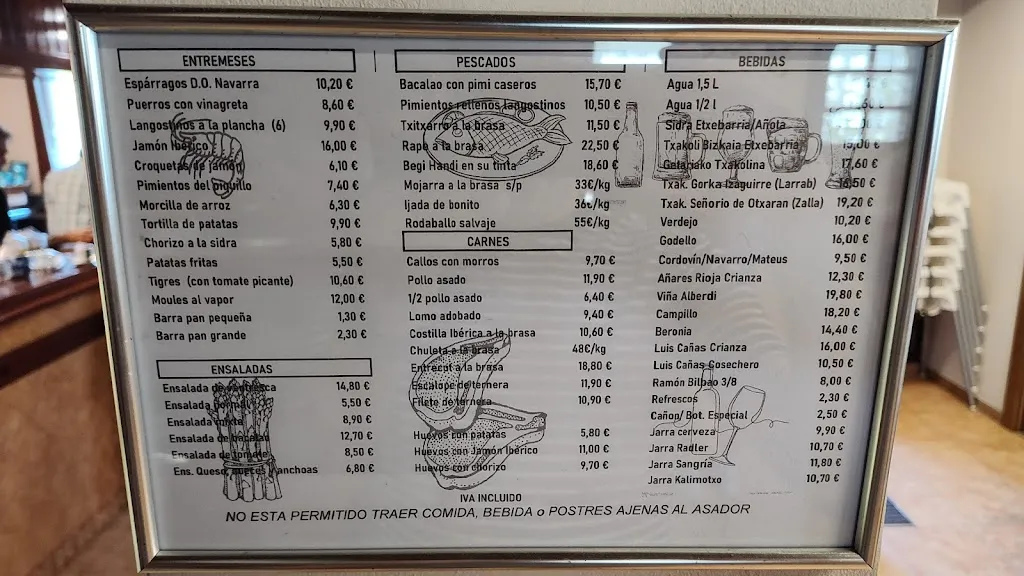 ENTREMESES
Espárragos D.O. Navarra 10,20 €
Puerros con vinagreta 8,60 €
Langostinos a la plancha (6) 9,90 €
Jamón Ibérico 16,00 €
Croquetas de jamón 6,10 €
Pimientos del piquillo 7,40 €
Morcilla de arroz 6,30 €
Tortilla de patatas 9,90 €
Chorizo a la sidra 5,80 €
Patatas fritas 5,50 €
Tigres (con tomate picante) 10,60 €
Moules al vapor 12,00 €
Barra pan pequeña 1,30 €
Barra pan grande 2,30 €
ENSALADAS
Ensalada de ventresca 14,80 €
Ensalada normal 5,50 €
Ensalada mixta 8,90 €
Ensalada de bacalao 12,70 €
Ensalada de tomate 8,50 €
Ens. Queso, nueces y anchoas 6,80 €
PESCADOS
Bacalao con pimi caseros 15,70 €
Pimientos rellenos langostinos 10,50 €
Txitxarro a la brasa 11,50 €
Rape a la brasa 22,50 €
Begi Handi en su tinta 18,60 €
Mojarra a la brasa s/p 33€/kg
Ijada de bonito 36€/kg
Rodaballo salvaje 55€/kg
CARNES
Callos con morros 9,70 €
Pollo asado 11,90 €
1/2 pollo asado 6,40 €
Lomo adobado 9,40 €
Costilla Ibérica a la brasa 10,60 €
Chuleta a la brasa 48€/kg
Entrecot a la brasa 18,80 €
Escalope de ternera 11,90 €
Filete de ternera 10,90 €
Huevos con patatas 5,80 €
Huevos con Jamón Ibérico 11,00 €
Huevos con chorizo 9,70 €
BEBIDAS
Agua 1,5 L
Agua 1/2 l
Sidra Etxebarria/Añota
Txakoli Bizkaia Etxebarria 15,00 €
Getariako Txakolina 17,60 €
Txak. Gorka Izaguirre (Larrab) 16,50 €
Txak. Señorio de Otxaran (Zalla) 19,20 €
Verdejo 10,20 €
Godello 16,00 €
Cordovín/Navarro/Mateus 9,50 €
Añares Rioja Crianza 12,30 €
Viña Alberdi 19,80 €
Campillo 18,20 €
Beronia 14,40 €
Luis Cañas Crianza 16,00 €
Luis Cañas Cosechero 10,50 €
Ramón Bilbao 3/8 8,00 €
Refrescos 2,30 €
Cañon/ Bot. Especial 2,50 €
Jarra cerveza 9,90 €
Jarra Radler 10,70 €
Jarra Sangria 11,80 €
Jarra Kalimotxo 10,70 €
IVA INCLUIDO
NO ESTA PERMITIDO TRAER COMIDA, BEBIDA o POSTRES AJENAS AL ASADOR